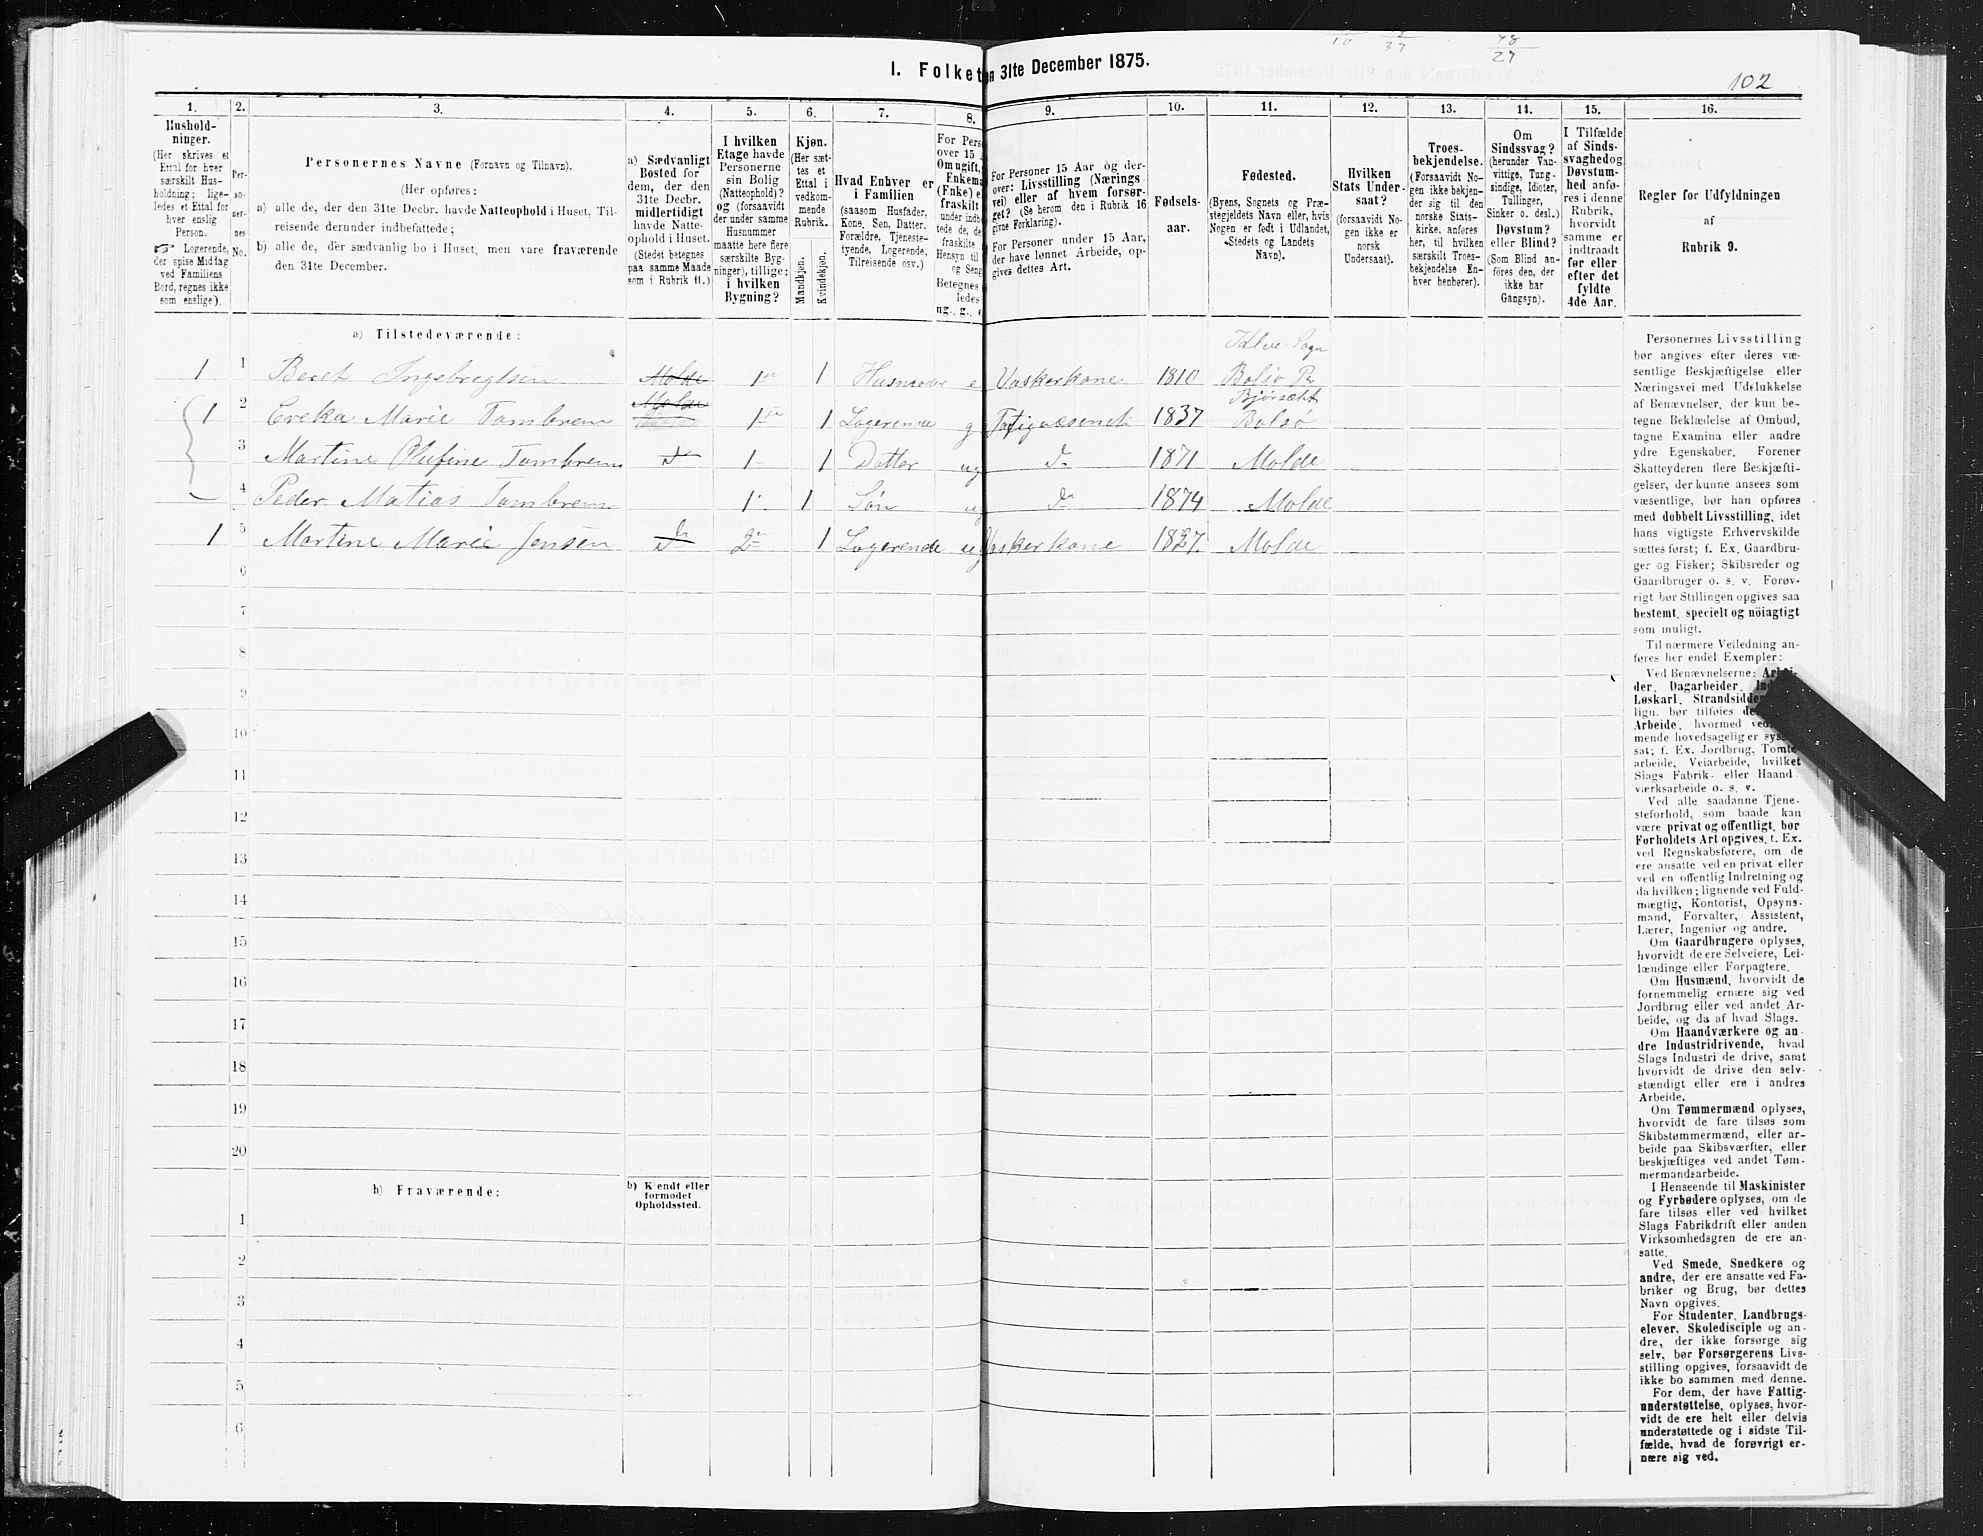 37
48
27
I. Folket
n 31te December 1875.
102
1. 2. 3. 4. 5. 6. 7. 8. 9. 10. 11. 12. 13. 14. 15. 16.
Husholdninger.
(Her skrives et
Ettal for hver
særskilt Husholdning; ligeledes et Ettal for
hver enslig
Person.
☞ Logerende,
der spise Middag
ved Familiens
Bord, regnes ikke
som enslige).
Personernes
No.
Personernes Navne (Fornavn og Tilnavn).
(Her opføres:
a) alle de, der den 31te Decbr. havde Natteophold i Huset, Tilreisende derunder indbefattede;
b) alle de, der sædvanlig bo i Huset, men vare fraværende
den 31te December.
a) Sædvanligt
Bosted for
dem, der den
31te Decbr.
midlertidigt
havde Natteophold i Huset.
(Stedet betegnes
paa samme Maade
som i Rubrik 11.)
I hvilken
Etage havde
Personerne
sin Bolig
(Natteophold)?
og (forsaavidt
der under samme
Husnummer
maatte here flere
særskilte Bygninger), tillige:
i hvilken
Bygning?
Kjøn.
(Her sættes et
Ettal i
vedkommende
Rubrik.
Mandkjøn.
Kvindekjøn.
Hvad Enhver er
i Familien
(saasom Husfader,
Kone, Søn, Datter,
Forældre, Tjenestetyende, Logerende,
Tilreisende osv.)
For Pers
over 15
Om ugift,
Enkema
(Fnke) e
fraskilt
under indbe
tede de,
fraskilte
Hensyn til
og Seng
Betegnes
ledes
ug., g., e
For Personer 15 Aar og derover: Livsstilling (Næringsvei) eller af hvem forsørget? (Se herom den i Rubrik 16
givne Forklaring).
For Personer under 15 Aar,
der have lønnet Arbeide, opgives dettes Art.
Fødselsaar.
Fødested.
(Byens, Sognets og Præstegjeldets Navn eller, hvis
Nogen er født i Udlandet,
Stedets og Landets
Navn).
Hvilken
Stats Undersaat?
(forsaavidt Nogen ikke er
norsk
Undersaat).
Troesbekjendelse.
(Forsaavidt Nogen ikke bekjender sig til den
norske Statskirke, anføres
her, til hvilken
særskilt Troesbekjendelse Enhver henhører).
Om
Sindssvag?
(herunder Vanvittige, Tungsindige, Idioter,
Tullinger,
Sinker o. desl.)
Døvstum?
eller Blind?
(Som Blind anføres den, der
ikke har
Gangsyn).
I Tilfælde
af Sindssvaghed og
Døvstumhed anføres i denne
Rubrik,
hvorvidt
samme er
indtraadt
før eller
efter det
fyldte
4de Aar.
Regler for Udfyldningen
af
Rubrik 9.
a) Tilstedeværende:
Kleve Sogn
1 1 Beret Ingebregtsen Molde 1 1 Husmoder e Vaskerkone 1810 Bolsø Pr
Molde Bjørsæt
1 2 Ereka Marie Tambrem 1 1 Logerende g Fatigvæsenet 1837 Bolsø
3 Martine Olufine Tambrem do 1 1 Datter ug do 1871 Molde
4 Peder Matias Tambrem 1 1 Søn ug do 1874 Molde
1 5 Martine Marie Jensen do 2 1 Logerende ug Vaskerkone 1827. Molde
6
7
8
9
10
11
12
13
14
15
16
17
18
19
20
b) Fraværende:
b) Kjendt eller
formodet
Opholdssted.
1
2
3
4
5
6
Personernes Livsstilling
bør angives efter deres væsentlige Beskjæftigelse eller
Næringsvei med Udelukkelse
af Benævnelser, der kun betegne Beklædelse af Ombud,
tagne Examina eller andre
ydre Egenskaber. Forener
Skatteyderen flere Beskjæftigelser, der kunne ansees som
væsentlige, bør han opføres
med dobbelt Livsstilling, idet
hans vigtigste Erhvervskilde
sættes først; f. Ex. Gaardbruger og Fisker; Skibsreder og
Gaardbruger o. s. v. Forøvrigt bør Stillingen opgives saa
bestemt, specielt og nöiagtigt
som muligt.
Til nærmere Veiledning anføres her endel Exempler:
Ved Benævnelserne: Arbeider, Dagarbeider, Ind
Løskarl, Strandsidder
lign. bør tilføies de
Arbeide, hvormed ved
mende hovedsagelig er syssel
sat; f. Ex. Jordbrug, Tomtearbeide, Veiarbeide, hvilket
Slags Fabrik- eller Haandværksarbeide o. s. v.
Ved alle saadanne Tjenesteforhold, som baade kan
være privat og offentligt, bør
Forholdets Art opgives, t. Ex.
ved Regnskabsførere, om de
ere ansatte ved en privat eller
ved en offentlig Indretning og
da hvilken; lignende ved Fuldmægtig, Kontorist, Opsynsmand, Forvalter, Assistent,
Lærer, Ingeniør og andre.
Om Gaardbrugere oplyses,
hvorvidt de ere Selveiere, Leilændinge eller Forpagtere.
Om Husmænd, hvorvidt de
fornemmelig ernære sig ved
Jordbrug eller ved andet Arbeide, og da af hvad Slags.
Om Haandværkere og andre Industridrivende, hvad
Slags Industri de drive, samt
hvorvidt de drive den selvstændigt eller ere i andres
Arbeide.
Om Tømmermænd oplyses,
hvorvidt de fare tilsøs som
Skibstømmermænd, eller arbeide paa Skibsværfter, eller
beskjæftiges ved andet Tømmermandsarbeide.
I Henseende til Maskinister
og Fyrbødere oplyses, om de
fare tilsøs eller ved hvilket
Slags Fabrikdrift eller anden
Virksomhedsgren de ere ansatte.
Ved Smede, Snedkere og
andre, der ere ansatte ved Fabriker og Brug, bør dettes
Navn opgives.
For Studenter, Landbrugselever, Skoledisciple og andre, der ikke forsørge sig
selv, bør Forsørgerens Livsstilling opgives, forsaavidt de
ikke bo sammen med denne.
For dem, der have Fattigunderstøttelse, oplyses, hvorvidt de ere helt eller delvis
understøttede og i sidste Tilfælde, hvad de forøvrigt ernære sig ved.